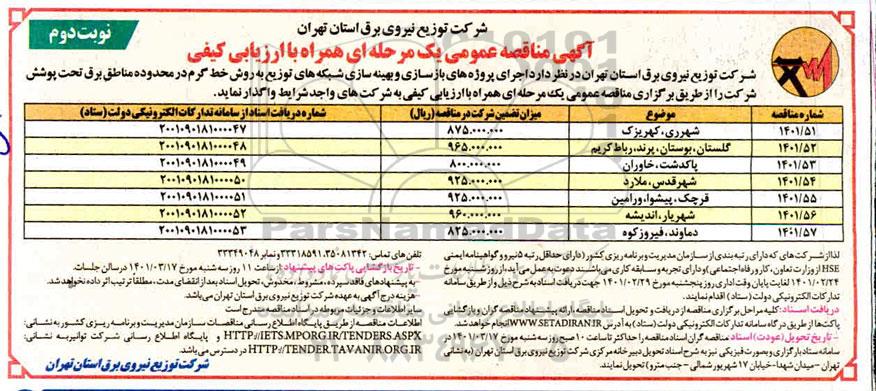 نوبت دوم
شرکت توزیع نیروی برق استان تهران
آگهی مناقصه عمومی یک مرحله ای همراه با ارزیابی کیفی
شرکت توزیع نیروی برق استان تهران در نظر دارد اجرای پروژه های بازسازی و بهینه سازی شبکه های توزیع به روش خط گرم در محدوده مناطق برق تحت پوشش
شرکت را از طریق برگزاری مناقصه عمومی یک مرحله ای همراه با ارزیابی کیفی به شرکت های واجد شرایط واگذار نماید.
شماره مناقصه موضوع میزان تضمین شرکت در مناقصه (ریال) شماره دریافت اسناد از سامانه تدارکات الکترونیکی دولت (ستاد)
۱۴۰۱/۵۱ شهرری، کهریزک ۸۷۵.۰۰۰.۰۰۰ ۲۰۰۱۰۹۰۱۸۱۰۰۰۰۴۷
۱۴۰۱/۵۲ گلستان، بوستان، پرند، رباط کریم ۹۶۵.۰۰۰.۰۰۰ ۲۰۰۱۰۹۰۱۸۱۰۰۰۰۴۸
۱۴۰۱/۵۳ پاکدشت، خاوران ۸۰۰.۰۰۰.۰۰۰ ۲۰۰۱۰۹۰۱۸۱۰۰۰۰۴۹
۱۴۰۱/۵۴ شهرقدس، ملارد ۹۲۵.۰۰۰.۰۰۰ ۲۰۰۱۰۹۰۱۸۱۰۰۰۰۵۰
۱۴۰۱/۵۵ قرچک، پیشوا، ورامین ۹۲۵.۰۰۰.۰۰۰ ۲۰۰۱۰۹۰۱۸۱۰۰۰۰۵۱
۱۴۰۱/۵۶ شهریار، اندیشه ۹۶۰.۰۰۰.۰۰۰ ۲۰۰۱۰۹۰۱۸۱۰۰۰۰۵۲
۱۴۰۱/۵۷ دماوند، فیروزکوه ۸۲۵.۰۰۰.۰۰۰ ۲۰۰۱۰۹۰۱۸۱۰۰۰۰۵۳
لذا از شرکت های که دارای رتبه بندی از سازمان مدیریت و برنامه ریزی کشور (دارای حداقل رتبه ۵ نیرو و گواهینامه ایمنی
HSE از وزارت تعاون، کار و رفاه اجتماعی) و دارای تجربه و سابقه کاری می باشند دعوت به عمل می آید، از روز شنبه مورخ
۱۴۰۱/۰۲/۲۴ لغایت پایان وقت اداری روز پنجشنبه مورخ ۱۴۰۱/۰۲/۲۹ جهت دریافت اسناد به شرح ذیل و از طریق سامانه
تدارکات الکترونیکی دولت (ستاد) اقدام نمایند.
دریافت اسناد: کلیه مراحل برگزاری مناقصه از دریافت و تحویل اسناد مناقصه، ارائه پیشنهاد مناقصه گران و بازگشایی
پاکت ها از طریق درگاه سامانه تدارکات الکترونیکی دولت (ستاد) به آدرس WWW.SETADIRAN.IR انجام خواهد شد.
- تاریخ تحویل (عودت) اسناد: مناقصه گران اسناد مناقصه را حداکثر تا ساعت ۱۰ صبح روز سه شنبه مورخ ۱۴۰۱/۰۳/۱۷ در
سامانه ستاد بارگزاری و بصورت فیزیکی نیز به شرح اسناد تحویل دبیرخانه مرکزی شرکت توزیع نیروی برق استان تهران (به نشانی
تهران - میدان شهدا - خیابان ۱۷ شهریور شمالی - جنب مترو) تحویل نمایند.
تلفن های تماس: ۳۵۰۸۱۳۴۲، ۳۳۳۱۸۵۹۱ و نمابر ۳۳۳۴۹۰۴۸
- تاریخ بازگشایی پاکت های پیشنهاد: از ساعت ۱۱ روز سه شنبه مورخ ۱۴۰۱/۰۳/۱۷ در سالن جلسات.
- به پیشنهادهای فاقد سپرده، مشروط، مخدوش، تحویل اسناد بعد از انقضای مدت، مطلقا ترتیب اثر داده نخواهد شد.
- هزینه درج آگهی به عهده شرکت توزیع نیروی برق استان تهران می باشد.
سایر اطلاعات و جزئیات مربوطه در اسناد مناقصه مندرج است
اطلاعات مناقصه از طریق پایگاه اطلاع رسانی مناقصات سازمان مدیریت و برنامه ریزی کشور به نشانی:
HTTP://IETS.MPORG.IR/TENDERS.ASPX و پایگاه اطلاع رسانی شرکت توانیر به نشانی:
HTTP://TENDER.TAVANIR.ORG.IR در دسترس می باشد.
شرکت توزیع نیروی برق استان تهران
ParsNamadData